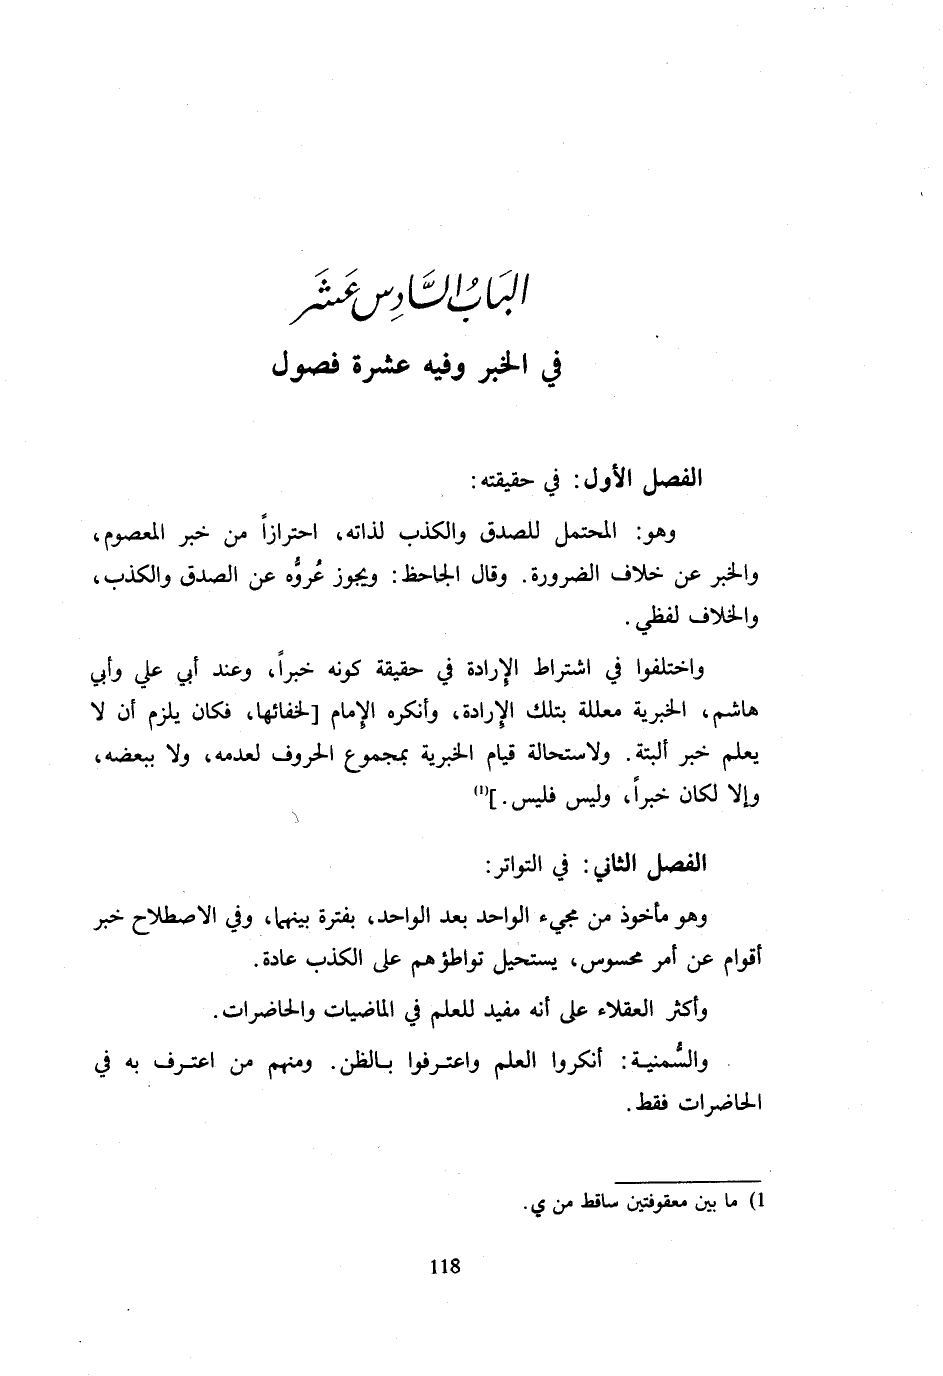 البَابُ السَّادِس عَشَر
في الخبر وفيه عشرة فصول
الفصل الأول: في حقيقته:
وهو: المحتمل للصدق والكذب لذاته، احترازاً من خبر المعصوم،
والخبر عن خلاف الضرورة. وقال الجاحظ: ويجوز عُروُّه عن الصدق والكذب،
والخلاف لفظي.
واختلفوا في اشتراط الإرادة في حقيقة كونه خبراً، وعند أبي علي وأبي
هاشم، الخبرية معللة بتلك الإرادة، وأنكره الإمام [لخفائها، فكان يلزم أن لا
يعلم خبر ألبتة. ولاستحالة قيام الخبرية بمجموع الحروف لعدمه، ولا ببعضه،
وإلا لكان خبراً، وليس فليس.](1)
الفصل الثاني: في التواتر:
وهو مأخوذ من مجيء الواحد بعد الواحد، بفترة بينهما، وفي الاصطلاح خبر
أقوام عن أمر محسوس، يستحيل تواطؤهم على الكذب عادة.
وأكثر العقلاء على أنه مفيد للعلم في الماضيات والحاضرات.
والسُّمنية: أنكروا العلم واعترفوا بالظن. ومنهم من اعترف به في
الحاضرات فقط.
1) ما بين معقوفتين ساقط من ي.
118